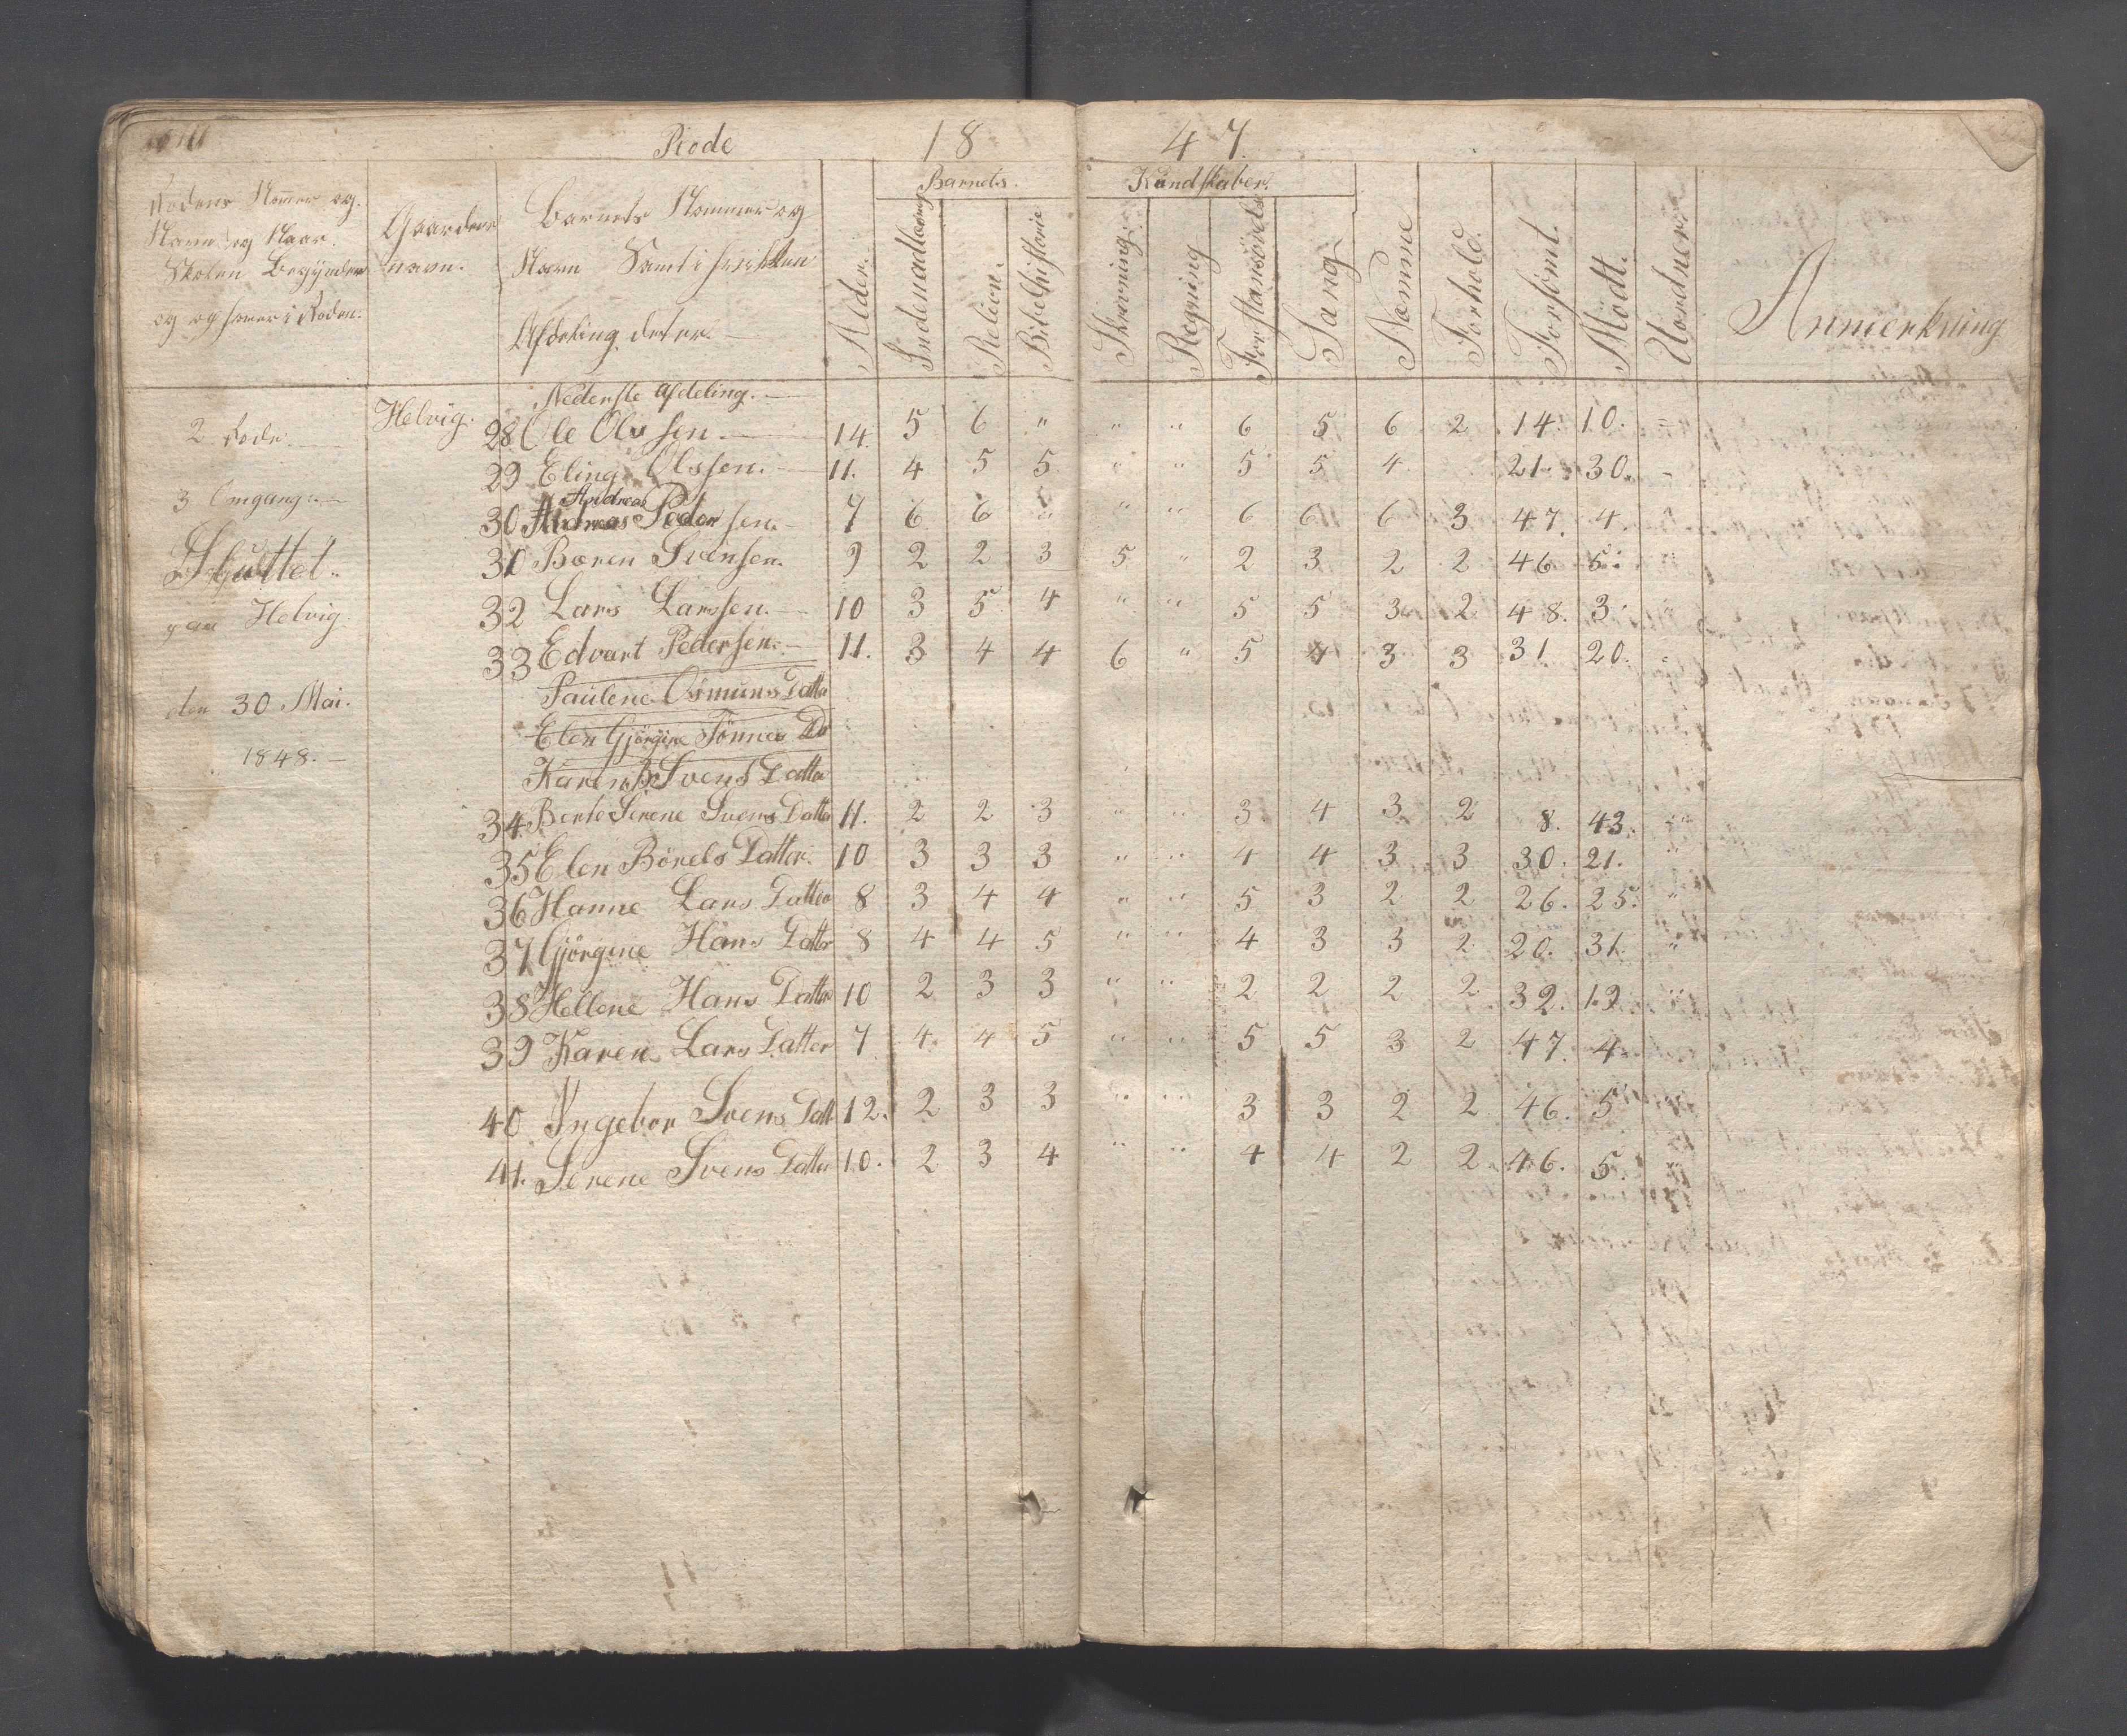 Rode 18 47.
Barnets. Kundskaber.
Rodens Nomer og
Navn og Naar
Skolen Begynder
og ophører i Roden.
Gaardens
navn.
Barnets Nommer og
Navn Samt i hvilken
Afdeling det er.
Alder.
Indenadlæsning
Releion.
Bibelhistorie
Skrivning.
Regning
Forstansövelse
Sang
Nemme
Forhold.
Forsömt.
Mödt.
Uordner.
Anmerkning
Nederste Afdeling.
2 Rode. Helvig. 28 Ole Olssen. 14. 5 6 " " " 6 5 6 2 14. 10. "
29 Eling Olssen. 11. 4 5 5 " " 5 5 4 21. 30. "
3 Omgang.
Andreas
30 Andreas Pedersen. 7 6 6 " " " 6 6 6 3 47. 4 "
Sluttet. 31 Bæren Svensen. 9 2 2 3 5 " 2 3 2 2 46 5.
paa Helvig 32 Lars Larssen. 10 3 5 4 " " 5 5 3 2 48. 3.
33 Edvart Pedersen. 11. 3 4 4 6 " 5 4 3 3 31 20.
den 30 Mai. Paulene Osmuns Datter
Elen Gjörgine Tönnes Dr
1848. Karen B Svens Datter
34 Berte Serene Svens Datter 11. 2 2 3 " " 3 4 3 2 8. 43. "
35 Elen Börels Datter. 10 3 3 3 " " 4 4 3 3 30. 21. "
36 Hanne Lars Datter 8 3 4 4 " " 5 3 2 2 26. 25. "
37 Gjörgine Hans Datter 8 4 4 5 " " 4 3 3 2 20. 31. "
38 Hellene Hans Datter 10 2 3 3 " " 2 2 2 2 32. 19. "
39 Karen Lars Datter 7 4 4 5 " " 5 5 3 2 47. 4
40 Ingebor Svens Datt 12. 2 3 3 " " 3 3 2 2 46. 5.
41. Serene Svens Datter 10. 2 3 4 " " 4 4 2 2 46. 5. "